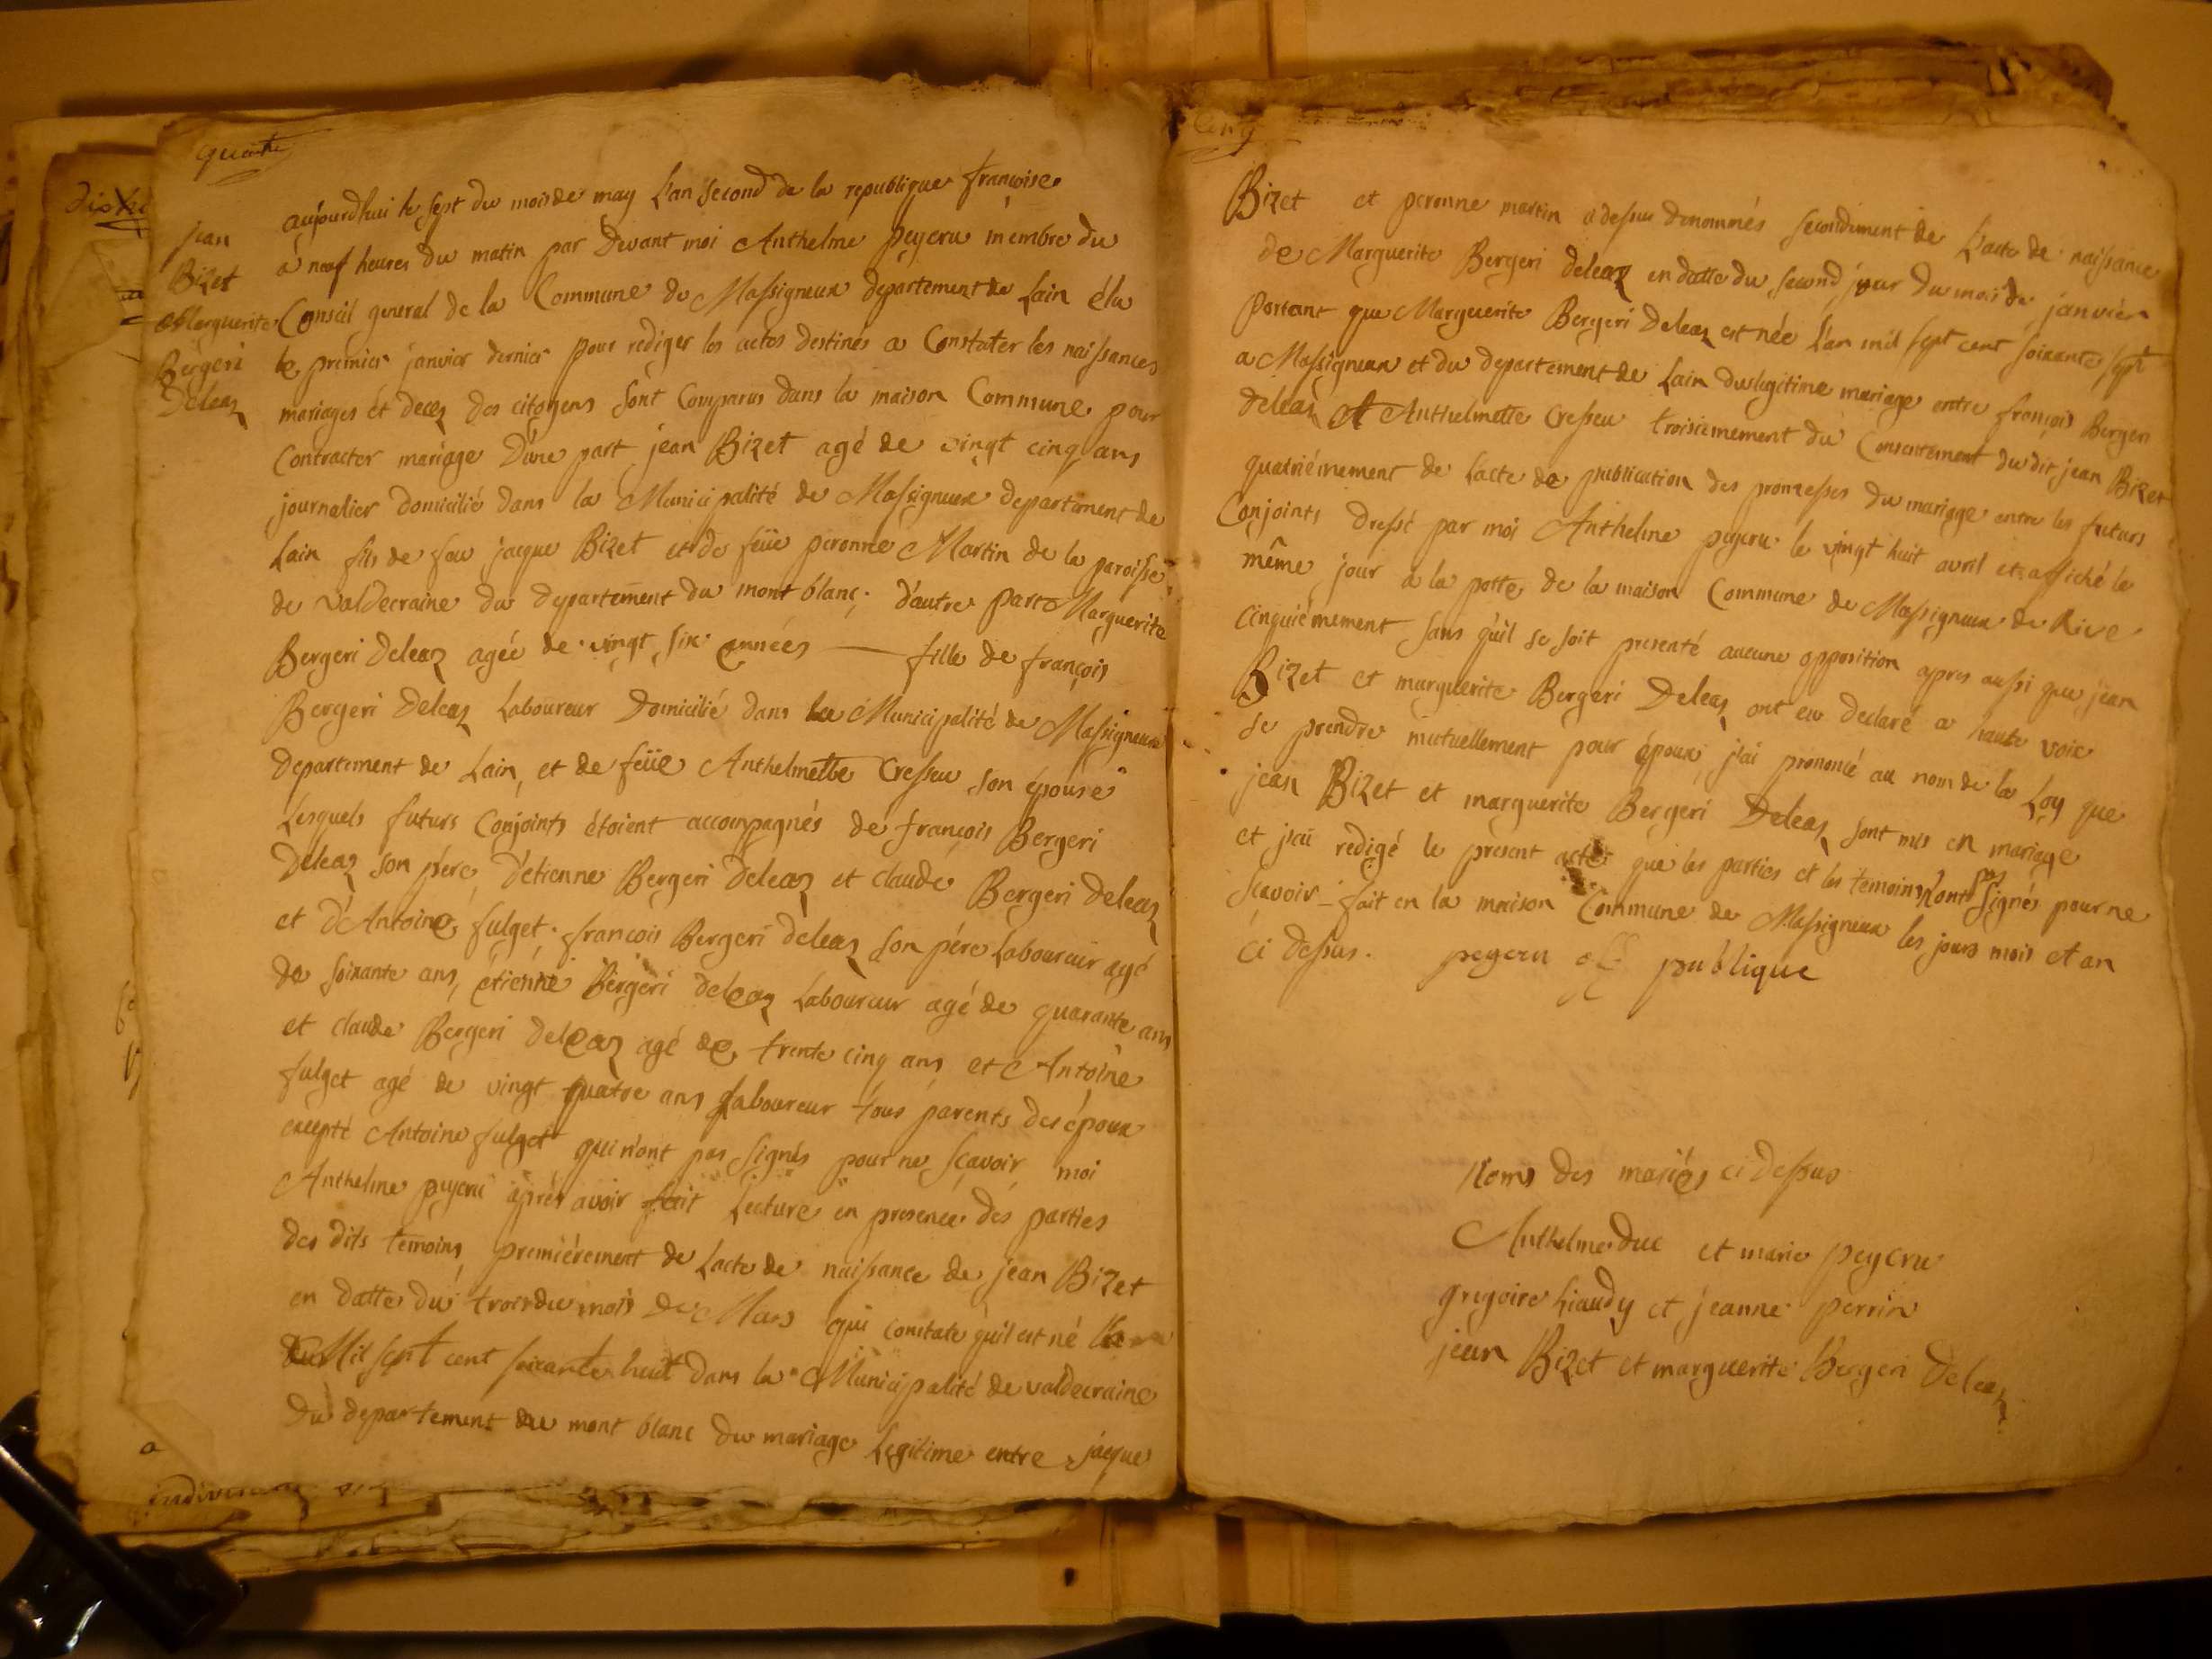 quatre
jean
Bizet
Marguerite
Bergeri
Deleaz
aujourdhui le sept du mois de may L'an second de la republique françoise
à neuf heures du matin par Devant moi Anthelme peycru membre du
Conseil general de la Commune de Massigneux departement de Lain élu
le premier janvier dernier pour rediger les actes destinés a Constater les naissances
mariages et decez des citoyens sont Comparus dans la maison Commune pour
Contracter mariage D'une part jean Bizet agé de vingt cinq ans
journalier domicilié dans la Municipalité de Massigneux departement de
Lain fils de feu jacque Bizet et de feüe peronne Martin de la paroisse
de valdecraine du departement du mont blanc; d'autre part Marguerite
Bergeri Deleaz agée de vingt six années — fille de françois
Bergeri Deleaz Laboureur Domicilié dans la Municipalité de Massigneux
departement de Lain, et de feüe Anthelmette Cresseu son épouse
Lesquels futurs Conjoints étoient accompagnés de françois Bergeri
Deleaz son pére, d'étienne Bergeri Deleaz et claude Bergeri Deleaz
et d'Antoine fulget. francois Bergeri deleaz son pére Laboureur agé
de soixante ans, étienne Bergeri deleaz Laboureur agé de quarante ans
et claude Bergeri Deleaz agé de trente cinq ans et Antoine
fulget agé de vingt quatre ans Laboureur tous parents des époux
excepté Antoine fulget qui n'ont pas signés pour ne sçavoir moi
Anthelme peycru aprés avoir fait Lecture en presence des parties
des dits temoins premiérement de Lacte de naissance de jean Bizet
en datte du trois du mois de Mars qui constate quil est né
Mil sept cent soixante huit dans la Municipalité de valdecraine
Du departement du mont blanc du mariage Legitime entre jacque
Cinq
Bizet et peronne martin adessus denommés secondiment de L'acte de naissance
de Marguerite Bergeri deleaz en datte du second jour du mois de janvier
Portant que Marguerite Bergeri Deleaz est née L'an mil sept cent soixante sept
a Massigneux et du departement de Lain du legitime mariage entre françois Bergeri
deleaz et Anthelmette Cresseu troisiemement du Consentement du dit jean Bizet
quatriémement de Lacte de publication des promesses du mariage entre les futurs
Conjoints dressé par moi Anthelme peycru le vingt huit avril et affiché le
même jour a la potte de la maison Commune de Massigneux de Rive
cinquiémement sans quil se soit presenté aucune opposition apres aussi que jean
Bizet et marguerite Bergeri Deleaz ont eu declaré a haute voix
se prendre mutuellement pour époux, j'ai prononcé au nom de la Loy que
jean Bizet et marguerite Bergeri Deleaz sont mis en mariage
et j'ai redigé le present acte que les parties et les temoins n'ont pas signés pour ne
Scavoir – fait en la maison Commune de Massigneux les jours mois et an
Ci dessus. peycru off publique
Noms des mariés ci dessus
Anthelme duc et marie peycru
gregoire Liaudy et jeanne perrin
jean Bizet et marguerite Bergeri Deleaz